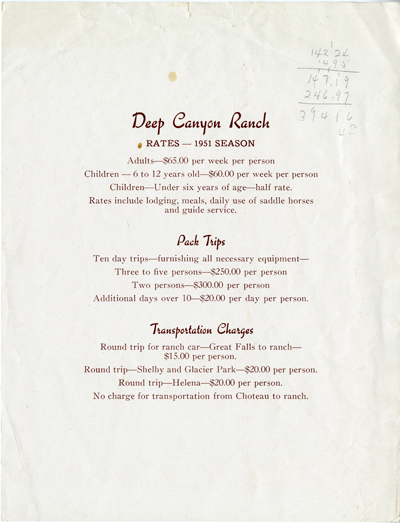 142 26
4 93
147.19
246.97
394 16
Deep Canyon Ranch
RATES — 1951 SEASON
Adults—$65.00 per week per person
Children — 6 to 12 years old—$60.00 per week per person
Children—Under six years of age—half rate.
Rates include lodging, meals, daily use of saddle horses
and guide service.
Pack Trips
Ten day trips—furnishing all necessary equipment—
Three to five persons—$250.00 per person
Two persons—$300.00 per person
Additional days over 10—$20.00 per day per person.
Transportation Charges
Round trip for ranch car—Great Falls to ranch—
$15.00 per person.
Round trip—Shelby and Glacier Park—$20.00 per person.
Round trip—Helena—$20.00 per person.
No charge for transportation from Choteau to ranch.